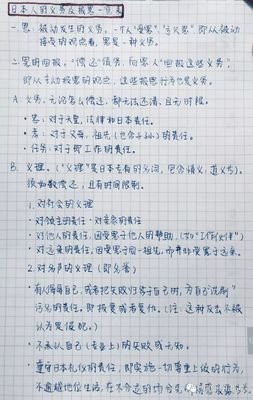 日本人的义务及报恩一览表
一. 恩. 被动发生的义务. 一个人"受恩"、"身负恩". 即从被动
接受的观点看, 恩是一种义务。
二. 恩的回报。"偿还"债务, 向恩人"回报这些义务",
即从主动报恩的观点, 这些报恩行为也是义务。
A. 义务。无论怎么偿还, 都无法还清, 且无时限。
·忠: 对于天皇, 法律和日本责任。
·孝: 对于父母, 祖先 (也含子孙) 的责任。
·任务: 对于即工作的责任。
B. 义理. ("义理"是日本专有的名词, 包含情义, 道义等)。
须如数偿还, 且有时间限制。
1. 对社会的义理
·对领主的责任·对姜亲的责任
·对他人的责任, 因受恩于他人的帮助, (如"工作伙伴")
·对远亲的责任, 因受恩于同一祖先, 而非受恩于远亲。
2. 对名声的义理 (即名誉)
·有人侮辱自己, 或者把失败归咎于自己时, 为自己"洗刷"
污名的责任。即报复或者复仇. (注: 这种反击不被
认为是侵犯。)
·不承认自己 (专业上) 的失败或无知。
·遵守日本礼仪的责任, 即实施一切尊重上级的行为,
不逾越地位生活, 在不合适的场合克